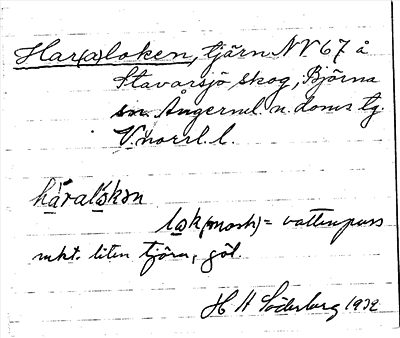 Har(a)loken, tjärn NV 67 å
Stavarsjö skog, Björna
sn. Ångerml. n. doms tg.
V.norrl. l.
håralåkən
låk (mask) = vattenpuss
mkt. liten tjärn, göl.
H A Söderberg 1932